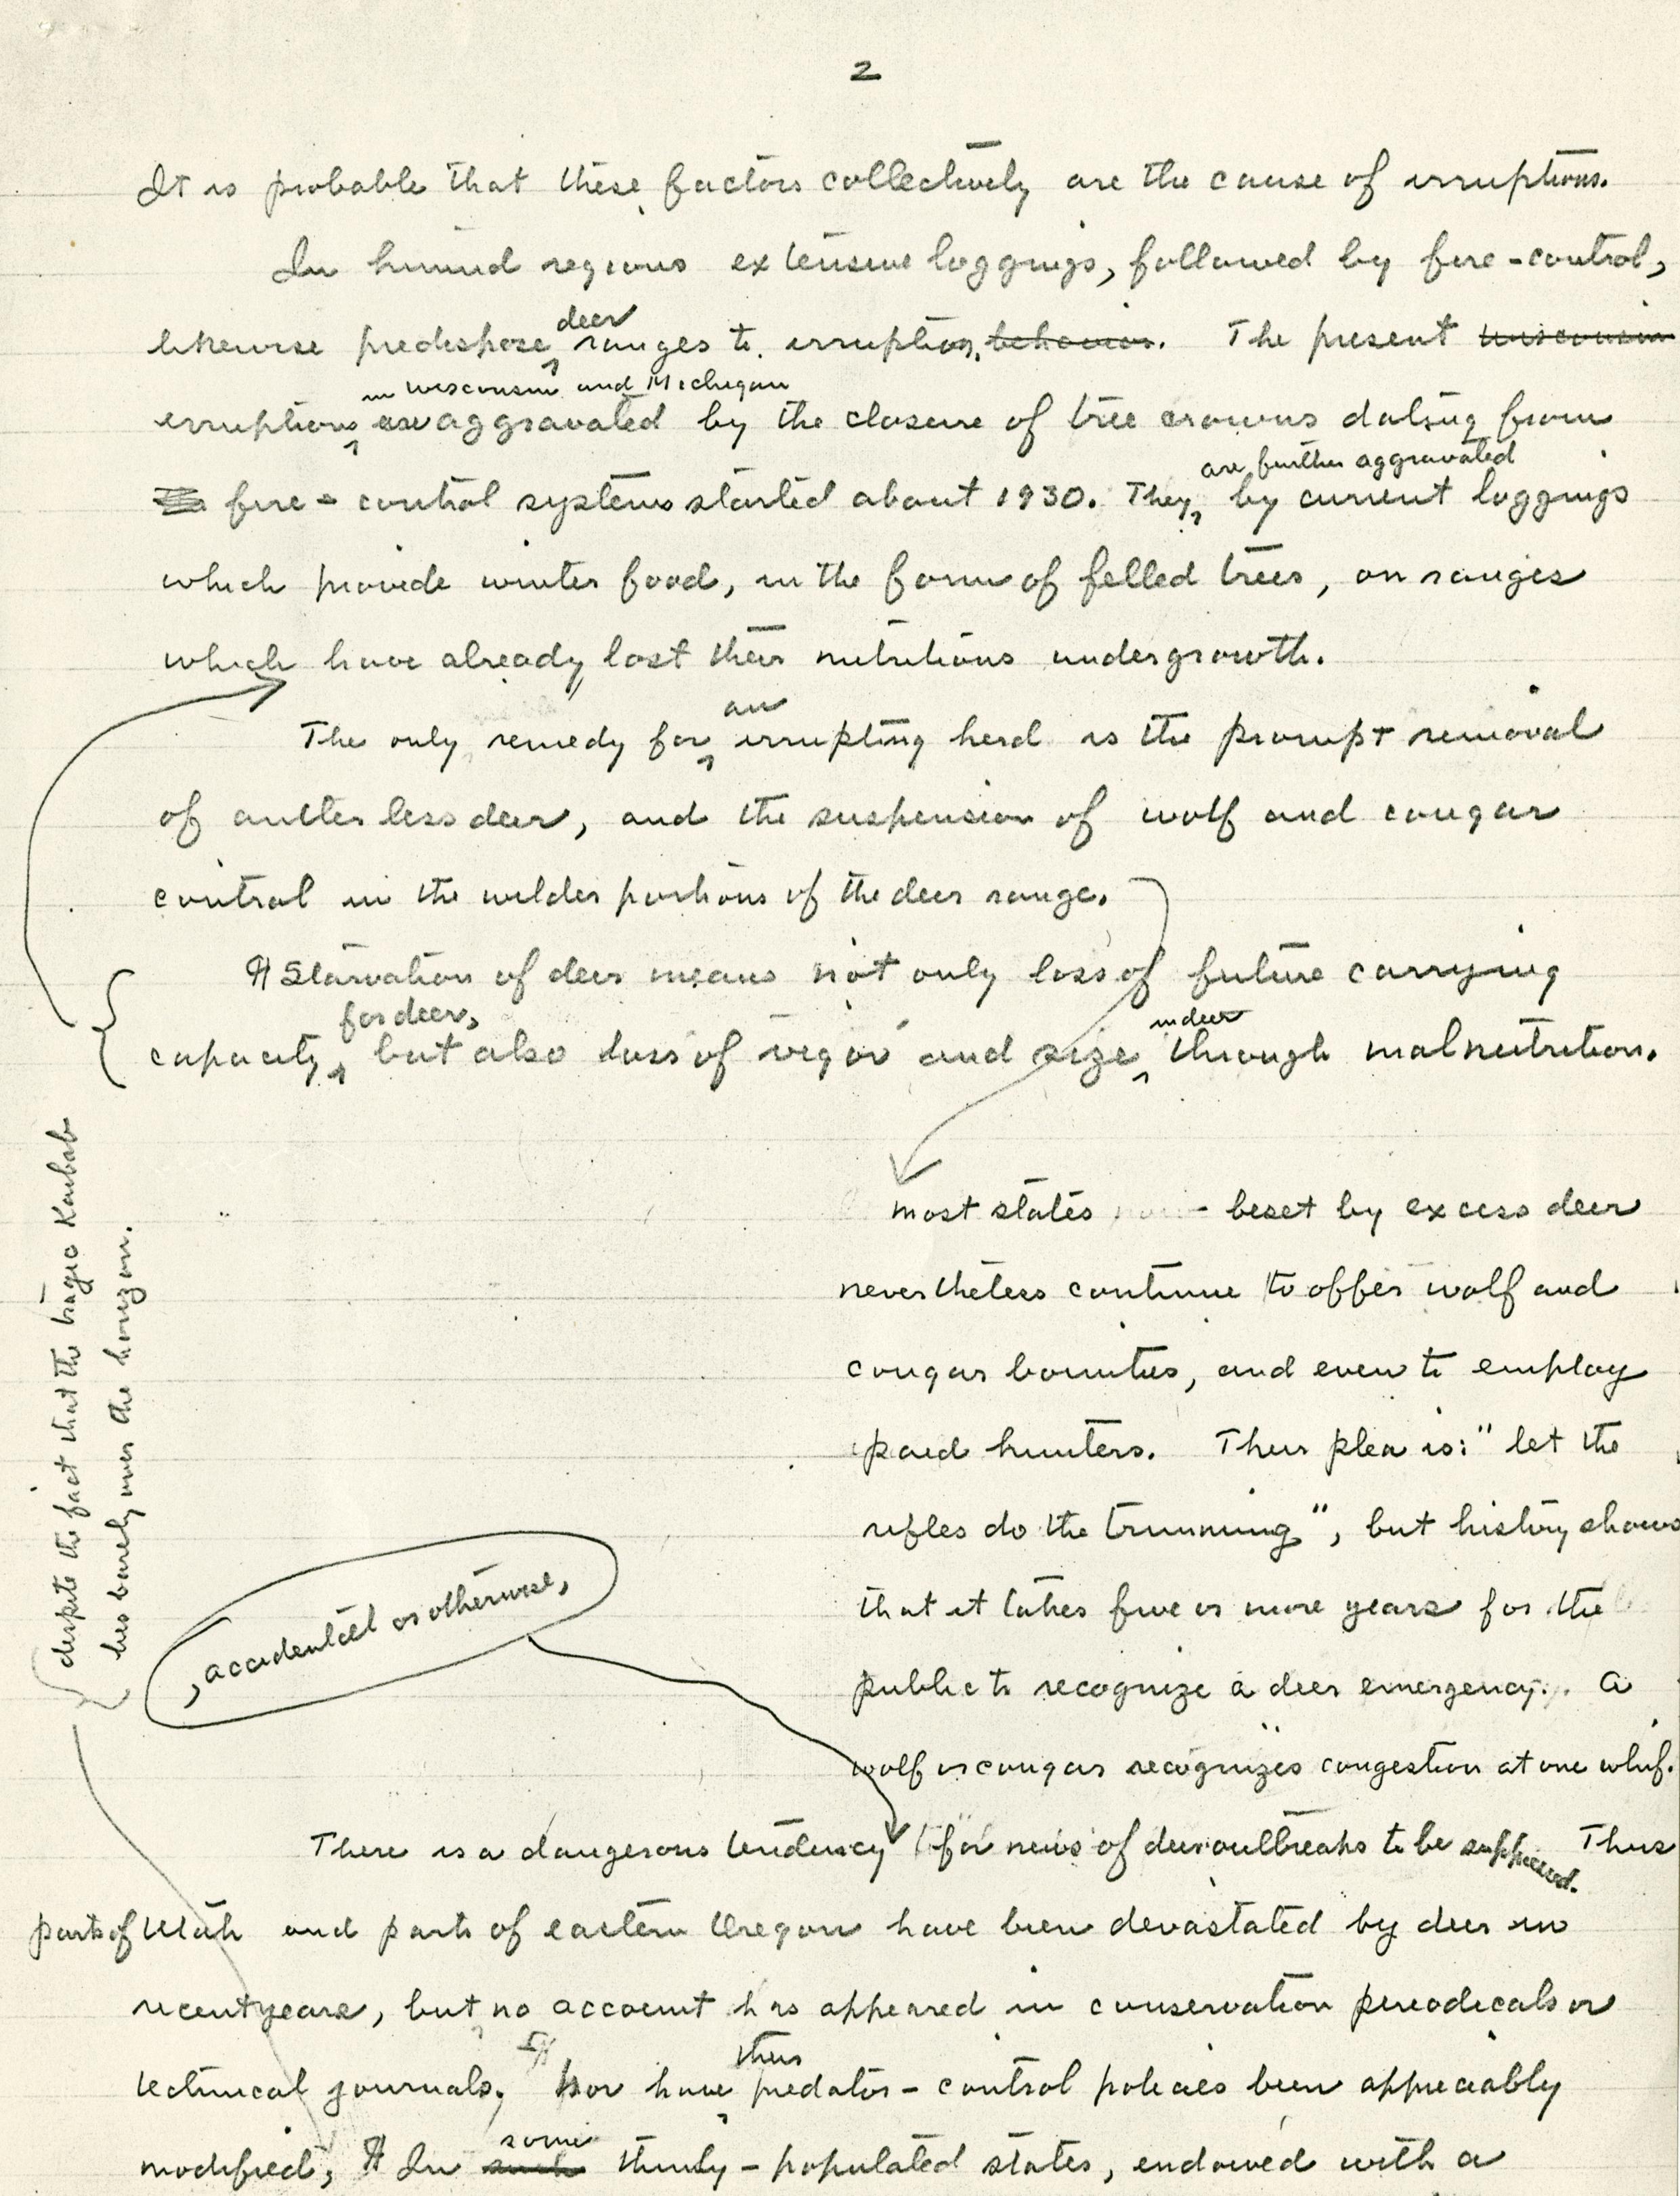 2
It is probable that these factors collectively are the cause of irruptions.
In humid regions extensive loggings, followed by fire-control,
deer
likewise predispose ranges to irruption behavior. The present Wisconsin
in Wisconsin and Michigan
irruptions are aggravated by the closure of tree crowns dating from
are further aggravated
fire-control systems started about 1930. They by current loggings
which provide winter food, in the form of felled trees, on ranges
which have already lost their nutritious undergrowth.
an
The only remedy for irrupting herd is the prompt removal
of antlerless deer, and the suspension of wolf and cougar
control in the wilder portions of the deer range.
¶ Starvation of deer means not only loss of future carrying
for deer,
in deer
capacity, but also loss of vigor and size through malnutrition.
most states beset by excess deer
nevertheless continue to offer wolf and
cougar bounties, and even to employ
paid hunters. Their plea is: "let the
rifles do the trimming", but history shows
that it takes five or more years for the
public to recognize a deer emergency. A
wolf or cougar recognizes congestion at one whif.
despite the fact that the tragic Kaibab
lies barely over the horizon.
, accidental or otherwise,
There is a dangerous tendency for news of deer outbreaks to be suppressed. Thus
parts of Utah and parts of eastern Oregon have been devastated by deer in
recent years, but no account has appeared in conservation periodicals or
their
technical journals. Nor have predator-control policies been appreciably
some
modified, ¶ In such thinly-populated states, endowed with a